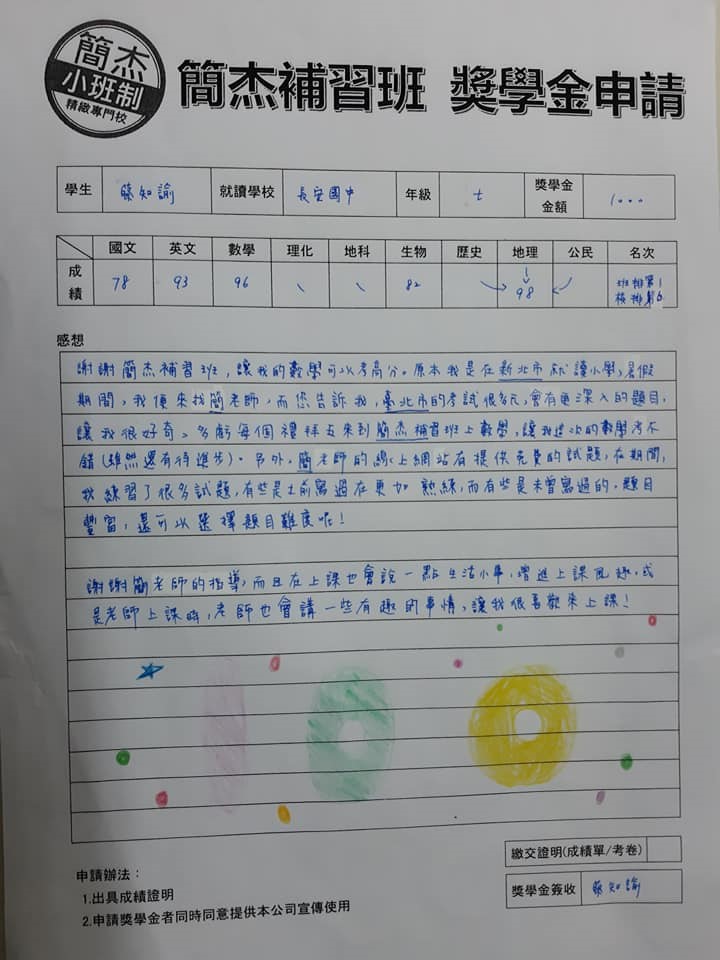 簡杰
小班制
精緻專門校
簡杰補習班 獎學金申請
學生 蔡知諭 就讀學校 長安國中 年級 七 獎學金金額 1000
國文 英文 數學 理化 地科 生物 歷史 地理 公民 名次
成績 78 93 96 \ \ 82 98 班排第1 校排第6
感想
謝謝簡杰補習班,讓我的數學可以考高分。原本我是在新北市就讀小學,暑假
期間,我便來找簡老師,而您告訴我,臺北市的考試很多元,會有更深入的題目,
讓我很好奇。多虧每個禮拜五來到簡杰補習班上數學,讓我這次的數學考不
錯(雖然還有待進步)。另外,簡老師的線上網站有提供免費的試題,在期間,
我練習了很多試題,有些是之前寫過在更加熟練,而有些是未曾寫過的。題目
豐富,還可以選擇題目難度呢!
謝謝簡老師的指導,而且在上課也會說一點生活小事,增進上課風趣,或
是老師上課時,老師也會講一些有趣的事情,讓我很喜歡來上課!
100
繳交證明(成績單/考卷)
申請辦法:
1.出具成績證明
2.申請獎學金者同時同意提供本公司宣傳使用
獎學金簽收 蔡知諭